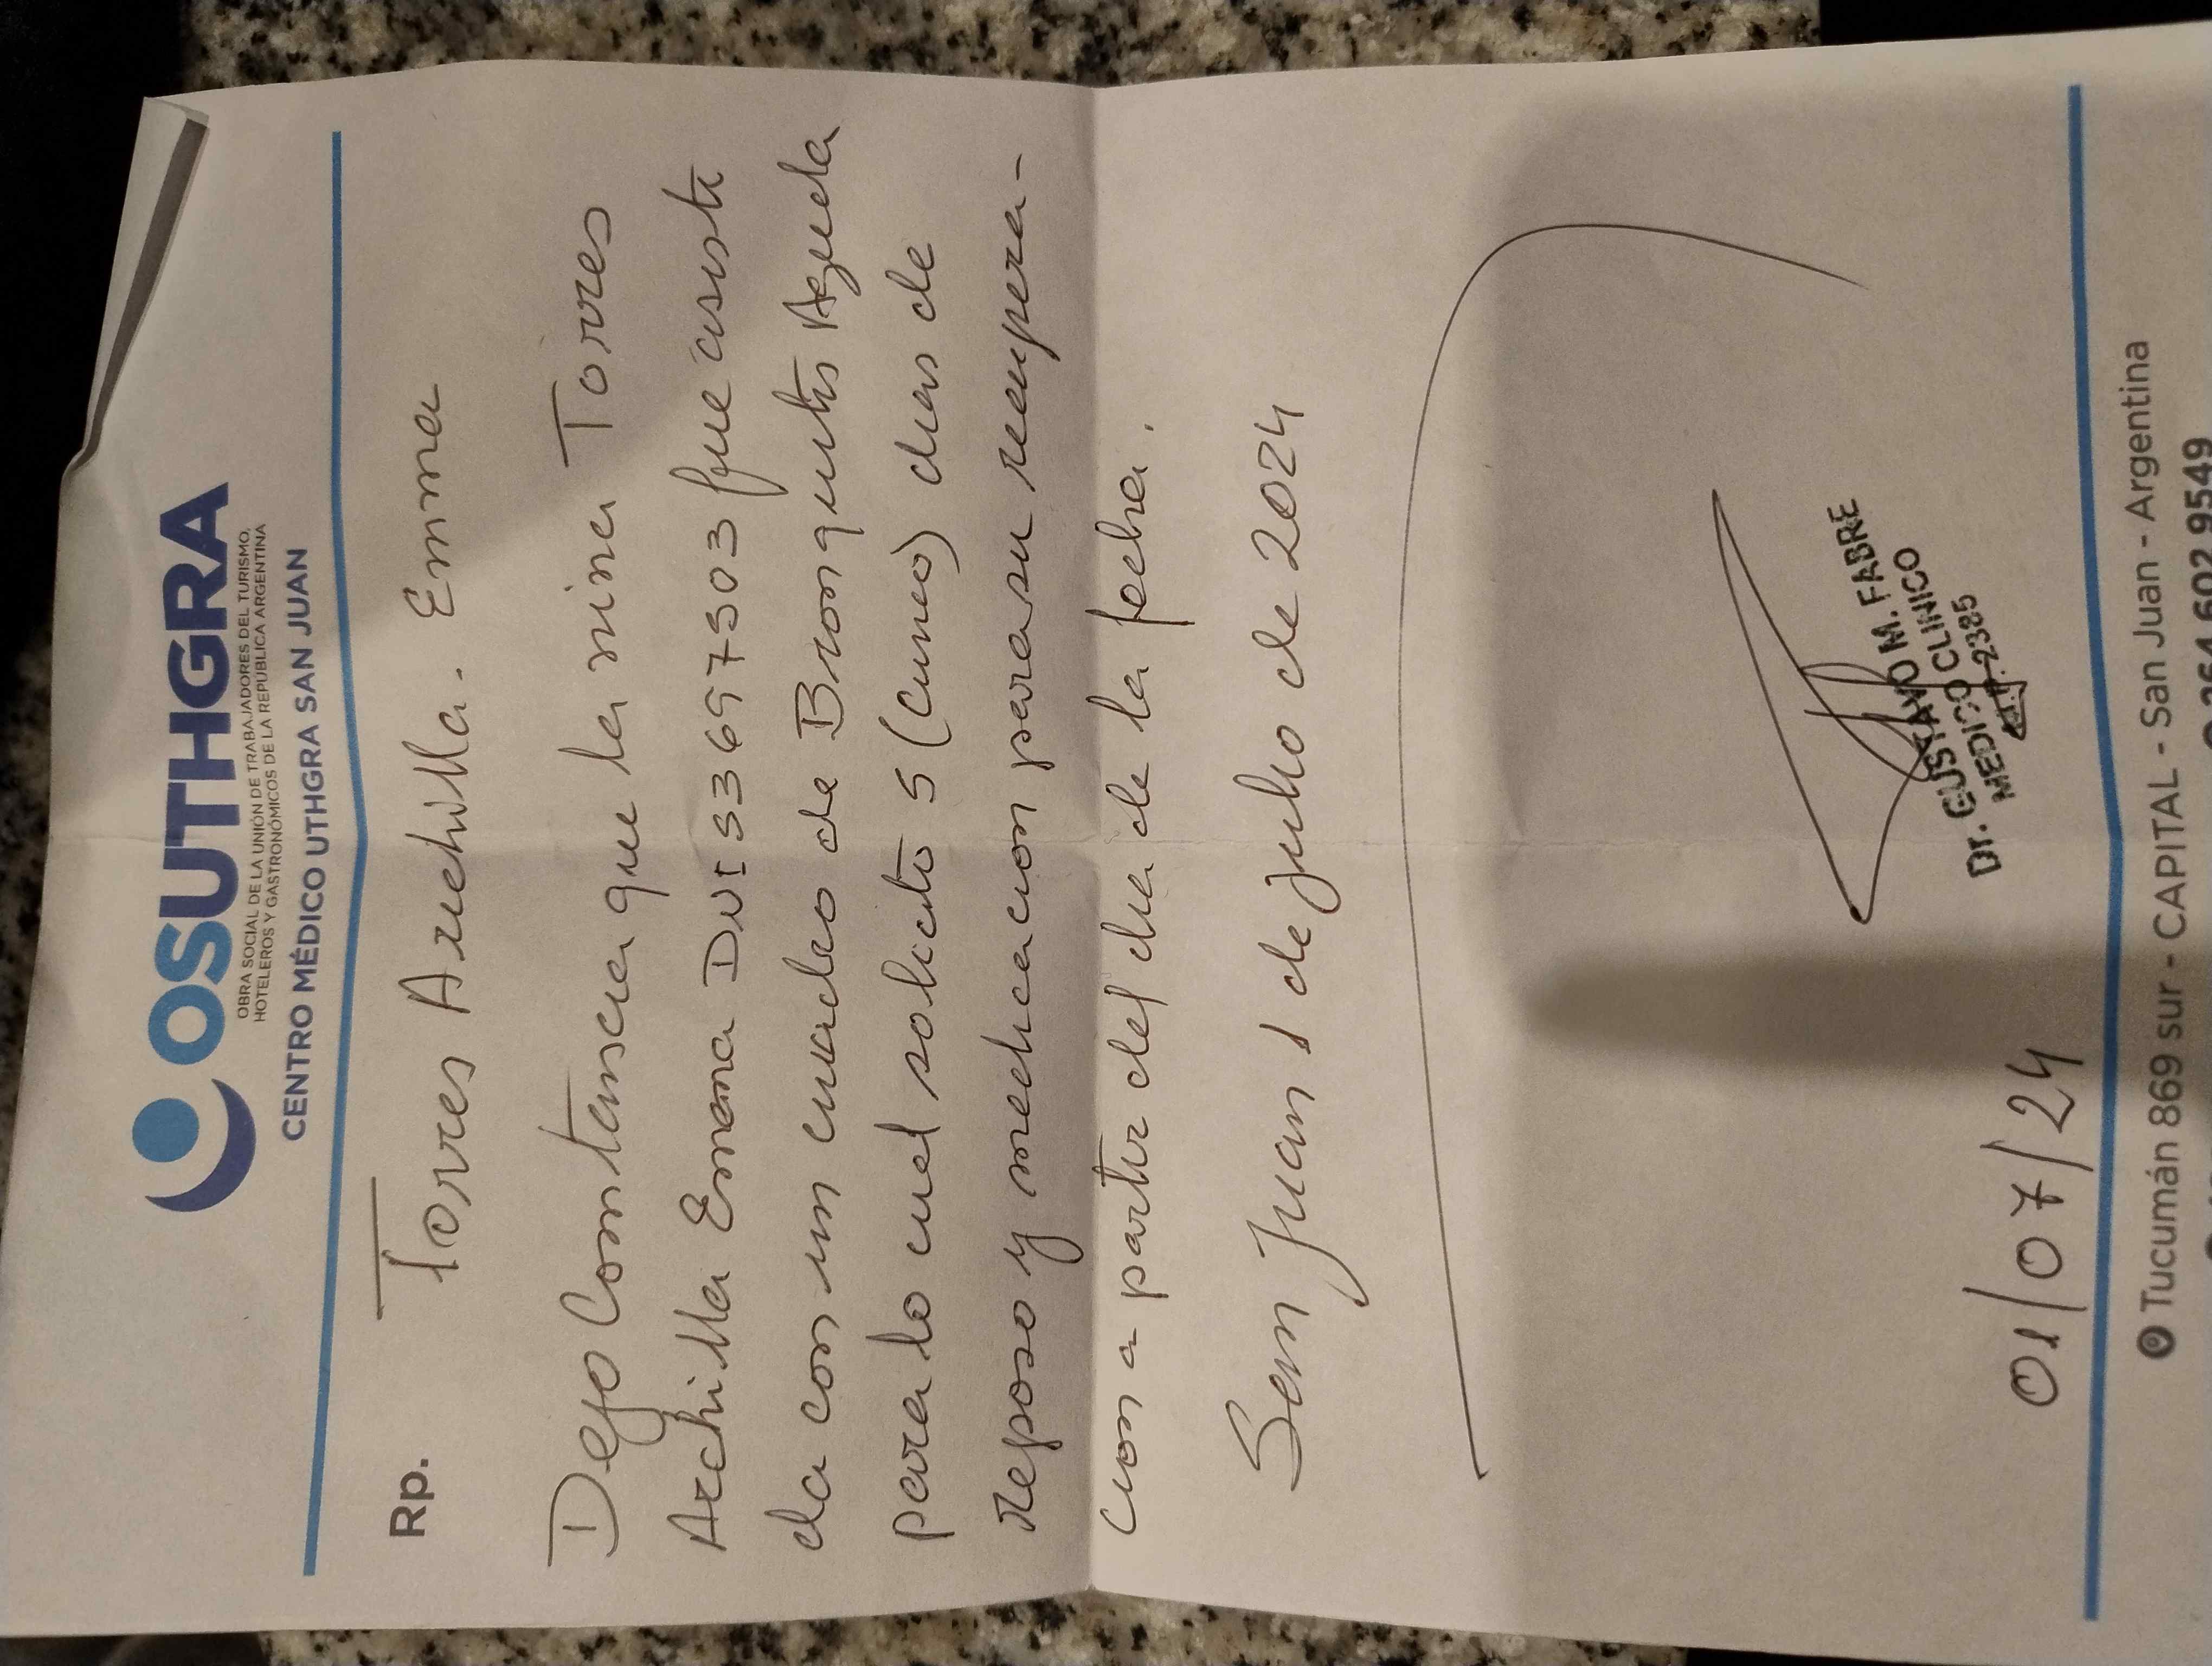 OSUTHGRA
OBRA SOCIAL DE LA UNIÓN DE TRABAJADORES DEL TURISMO,
HOTELEROS Y GASTRONÓMICOS DE LA REPÚBLICA ARGENTINA
CENTRO MÉDICO UTHGRA SAN JUAN
Rp.
Torres Archilla. Emma
Dejo Constancia que la nina Torres
Archilla Emma DNI 53697503 fue asisti
da con un cuadro de Bronquitis Aguda
para lo cual solicito 5 (Cinco) dias de
reposo y medicacion para su recupera-
cion a partir del dia de la fecha.
San Juan 1 de julio de 2024
Dr. GUSTAVO M. FABRE
MEDICO CLINICO
M.P. 2385
01/07/24
Tucumán 869 sur - CAPITAL - San Juan - Argentina
264 602 9549